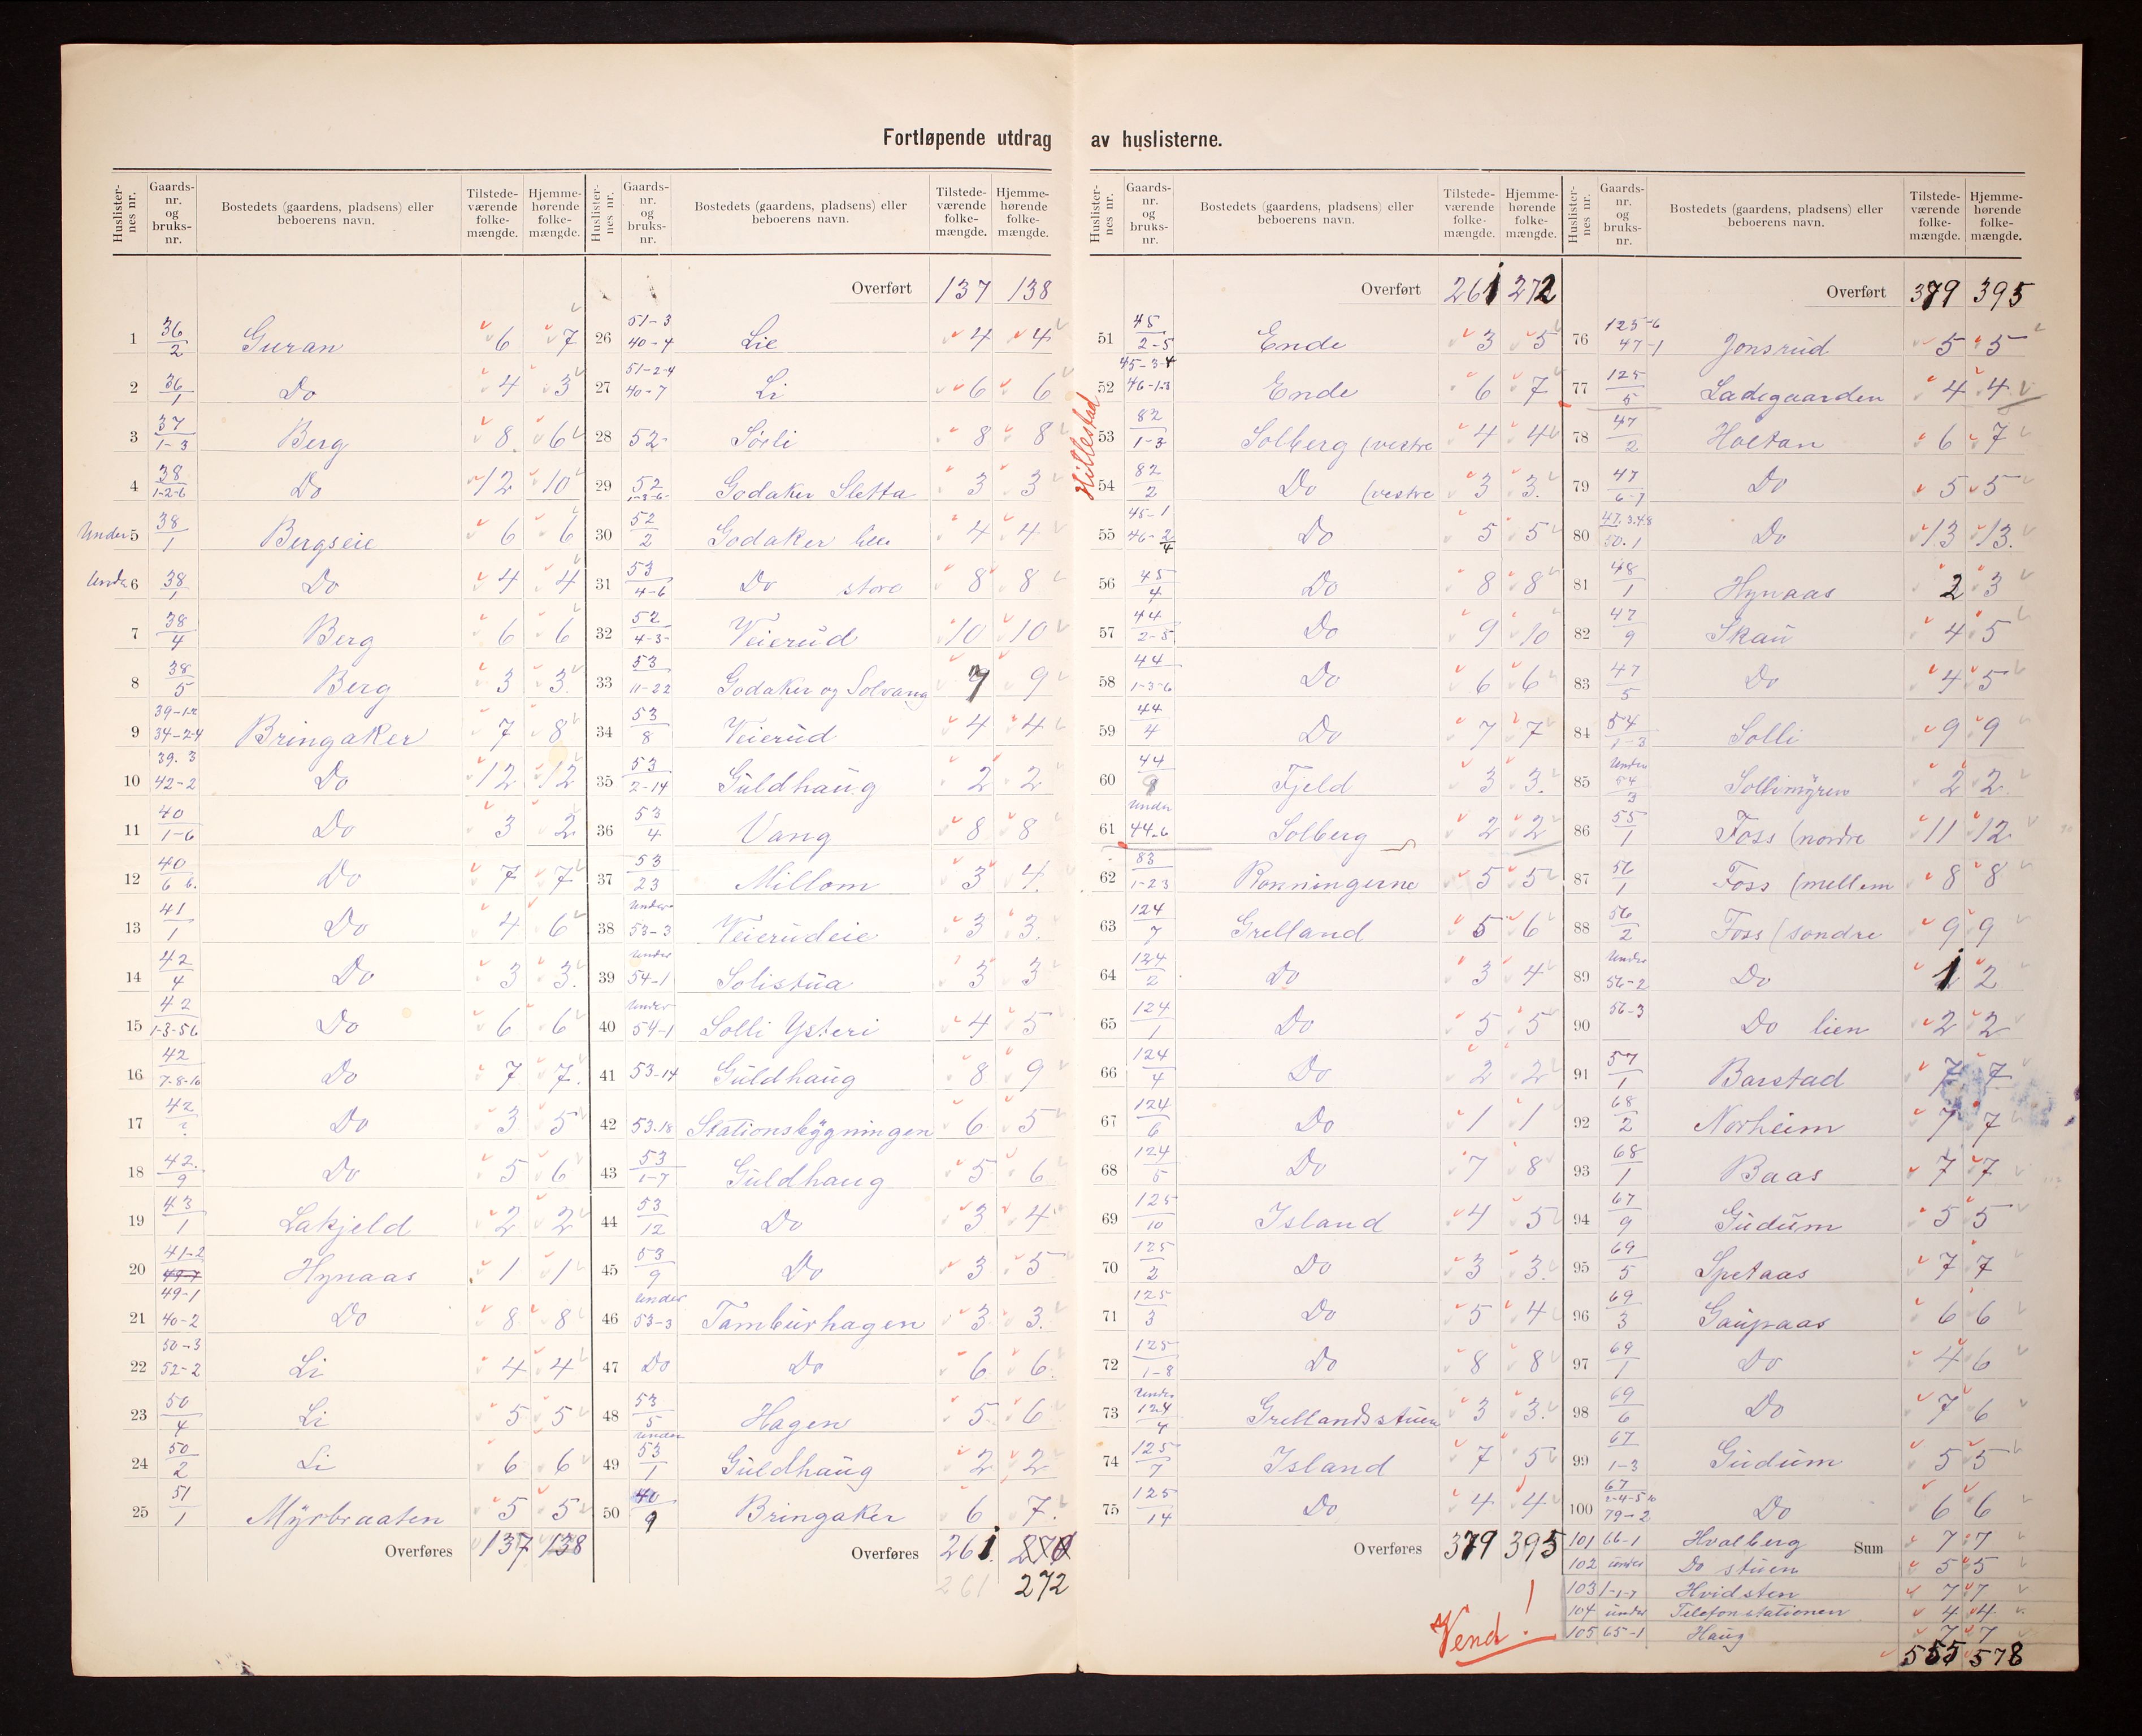 Fortløpende utdrag av huslisterne.
Huslister-nes nr. Gaards-nr. og bruks-nr. Bostedets (gaardens, pladsens) eller beboerens navn. Tilstede-værende folke-mængde. Hjemme-hørende folke-mængde.
1 36/2 Guran 6 7
2 36/1 Do 4 3
3 37/1-3 Berg 8 6
4 38/1-2-6 Do 12 10
Under 5 38/1 Bergseie 6 6
Under 6 38/1 Do 4 4
7 38/4 Berg 6 6
8 38/5 Berg 3 3
9 39-1-2 34-2-4 Bringaker 7 8
10 39.3 42-2 Do 12 12
11 40/1-6 Do 3 2
12 40/6 6. Do 7 7
13 41/1 Do 4 6
14 42/4 Do 3 3
15 42/1-3-56 Do 6 6
16 42/7-8-10 Do 7 7
17 42/? Do 3 5
18 42/9 Do 5 6
19 43/1 Lakjeld 2 2
20 41-2 49-7 Hynaas 1 1
21 49-1 40-2 Do 8 8
22 50-3 52-2 Li 4 4
23 50/4 Li 5 5
24 50/2 Li 6 6
25 51/1 Myrbraaten 5 5
Overføres 137 138
Huslister-nes nr. Gaards-nr. og bruks-nr. Bostedets (gaardens, pladsens) eller beboerens navn. Tilstede-værende folke-mængde. Hjemme-hørende folke-mængde.
Overført 137 138
26 51-3 40-4 Lie 4 4
27 51-2-4 40-7 Li 6 6
28 52- Sörli 8 8
29 52/1-3-6- Godaker Sletta 3 3
30 52/2 Godaker 4 4
31 53/4-6 Do store 8 8
32 52/4-3- Veierud 10 10
33 53/11-22 Godaker og Solvang 9 9
34 53/8 Veierud 4 4
35 53/2-14 Guldhaug 2 2
36 53/4 Vang 8 8
37 53/23 Millom 3 4
38 Under 53-3 Veierudeie 3 3
39 Under 54-1 Solistua 3 3
40 Under 54-1 Solli Ysteri 4 5
41 53-14 Guldhaug 8 9
42 53.18 Stationsbygningen 6 5
43 53/1-7 Guldhaug 5 6
44 53/12 Do 3 4
45 53/9 Do 3 5
46 Under 53-3 Tamburhagen 3 3
47 Do Do 6 6
48 53/5 Hagen 5 6
49 Under 53/1 Guldhaug 2 2
50 40/9 Bringaker 6 7
Overføres 261 270
261 272
Huslister-nes nr. Gaards-nr. og bruks-nr. Bostedets (gaardens, pladsens) eller beboerens navn. Tilstede-værende folke-mængde. Hjemme-hørende folke-mængde.
Overført 261 272
Hillestad
51 45/2-5 Ende 3 5
52 45-3-4 46-1-3 Ende 6 7
53 82/1-3 Solberg (vestre 4 4
54 82/2 Do (vestre 3 3
55 45-1 46-2/4 Do 5 5
56 45/4 Do 8 8
57 44/2-5 Do 9 10
58 44/1-3-6 Do 6 6
59 44/4 Do 7 7
60 44/9 Fjeld 3 3
61 Under 44-6 Solberg 2 2
62 83/1-23 Rønningerne 5 5
63 124/7 Grelland 5 6
64 124/2 Do 3 4
65 124/1 Do 5 5
66 124/4 Do 2 2
67 124/6 Do 1 1
68 124/5 Do 7 8
69 125/10 Island 4 5
70 125/2 Do 3 3
71 125/3 Do 5 4
72 125/1-8 Do 8 8
73 Under 124/4 Grellandsstuen 3 3
74 125/7 Island 7 5
75 125/14 Do 4 4
Overføres 379 395
Vend!
Huslister-nes nr. Gaards-nr. og bruks-nr. Bostedets (gaardens, pladsens) eller beboerens navn. Tilstede-værende folke-mængde. Hjemme-hørende folke-mængde.
Overført 379 395
76 125-6 47-1 Jonsrud 5 5
77 125/5 Ladegaarden 4 4
78 47/2 Holtan 6 7
79 47/6-7 Do 5 5
80 47.3.4.8 50.1 Do 13 13
81 48/1 Hynaas 2 3
82 47/9 Skau 4 5
83 47/5 Do 4 5
84 54/1-3 Solli 9 9
85 Under 54/3 Sollimyren 2 2
86 55/1 Foss (nordre 11 12
87 56/1 Foss (mellem 8 8
88 56/2 Foss (søndre 9 9
89 Under 56-2 Do 1 2
90 56-3 Do lien 2 2
91 57/1 Barstad 7 7
92 68/2 Norheim 7 7
93 68/1 Baas 7 7
94 67/9 Gudum 5 5
95 69/5 Spetaas 7 7
96 69/3 Gaupaas 6 6
97 69/1 Do 4 6
98 69/6 Do 7 6
99 67/1-3 Gudum 5 5
100 67/2-4-5 10 79-2 Do 6 6
101 66-1 Hvalberg Sum 7 7
102 under Do stuen 5 5
103 1-1-7 Hvidsten 7 7
104 under Telefonstationen 4 4
105 65-1 Haug 7 7
555 578